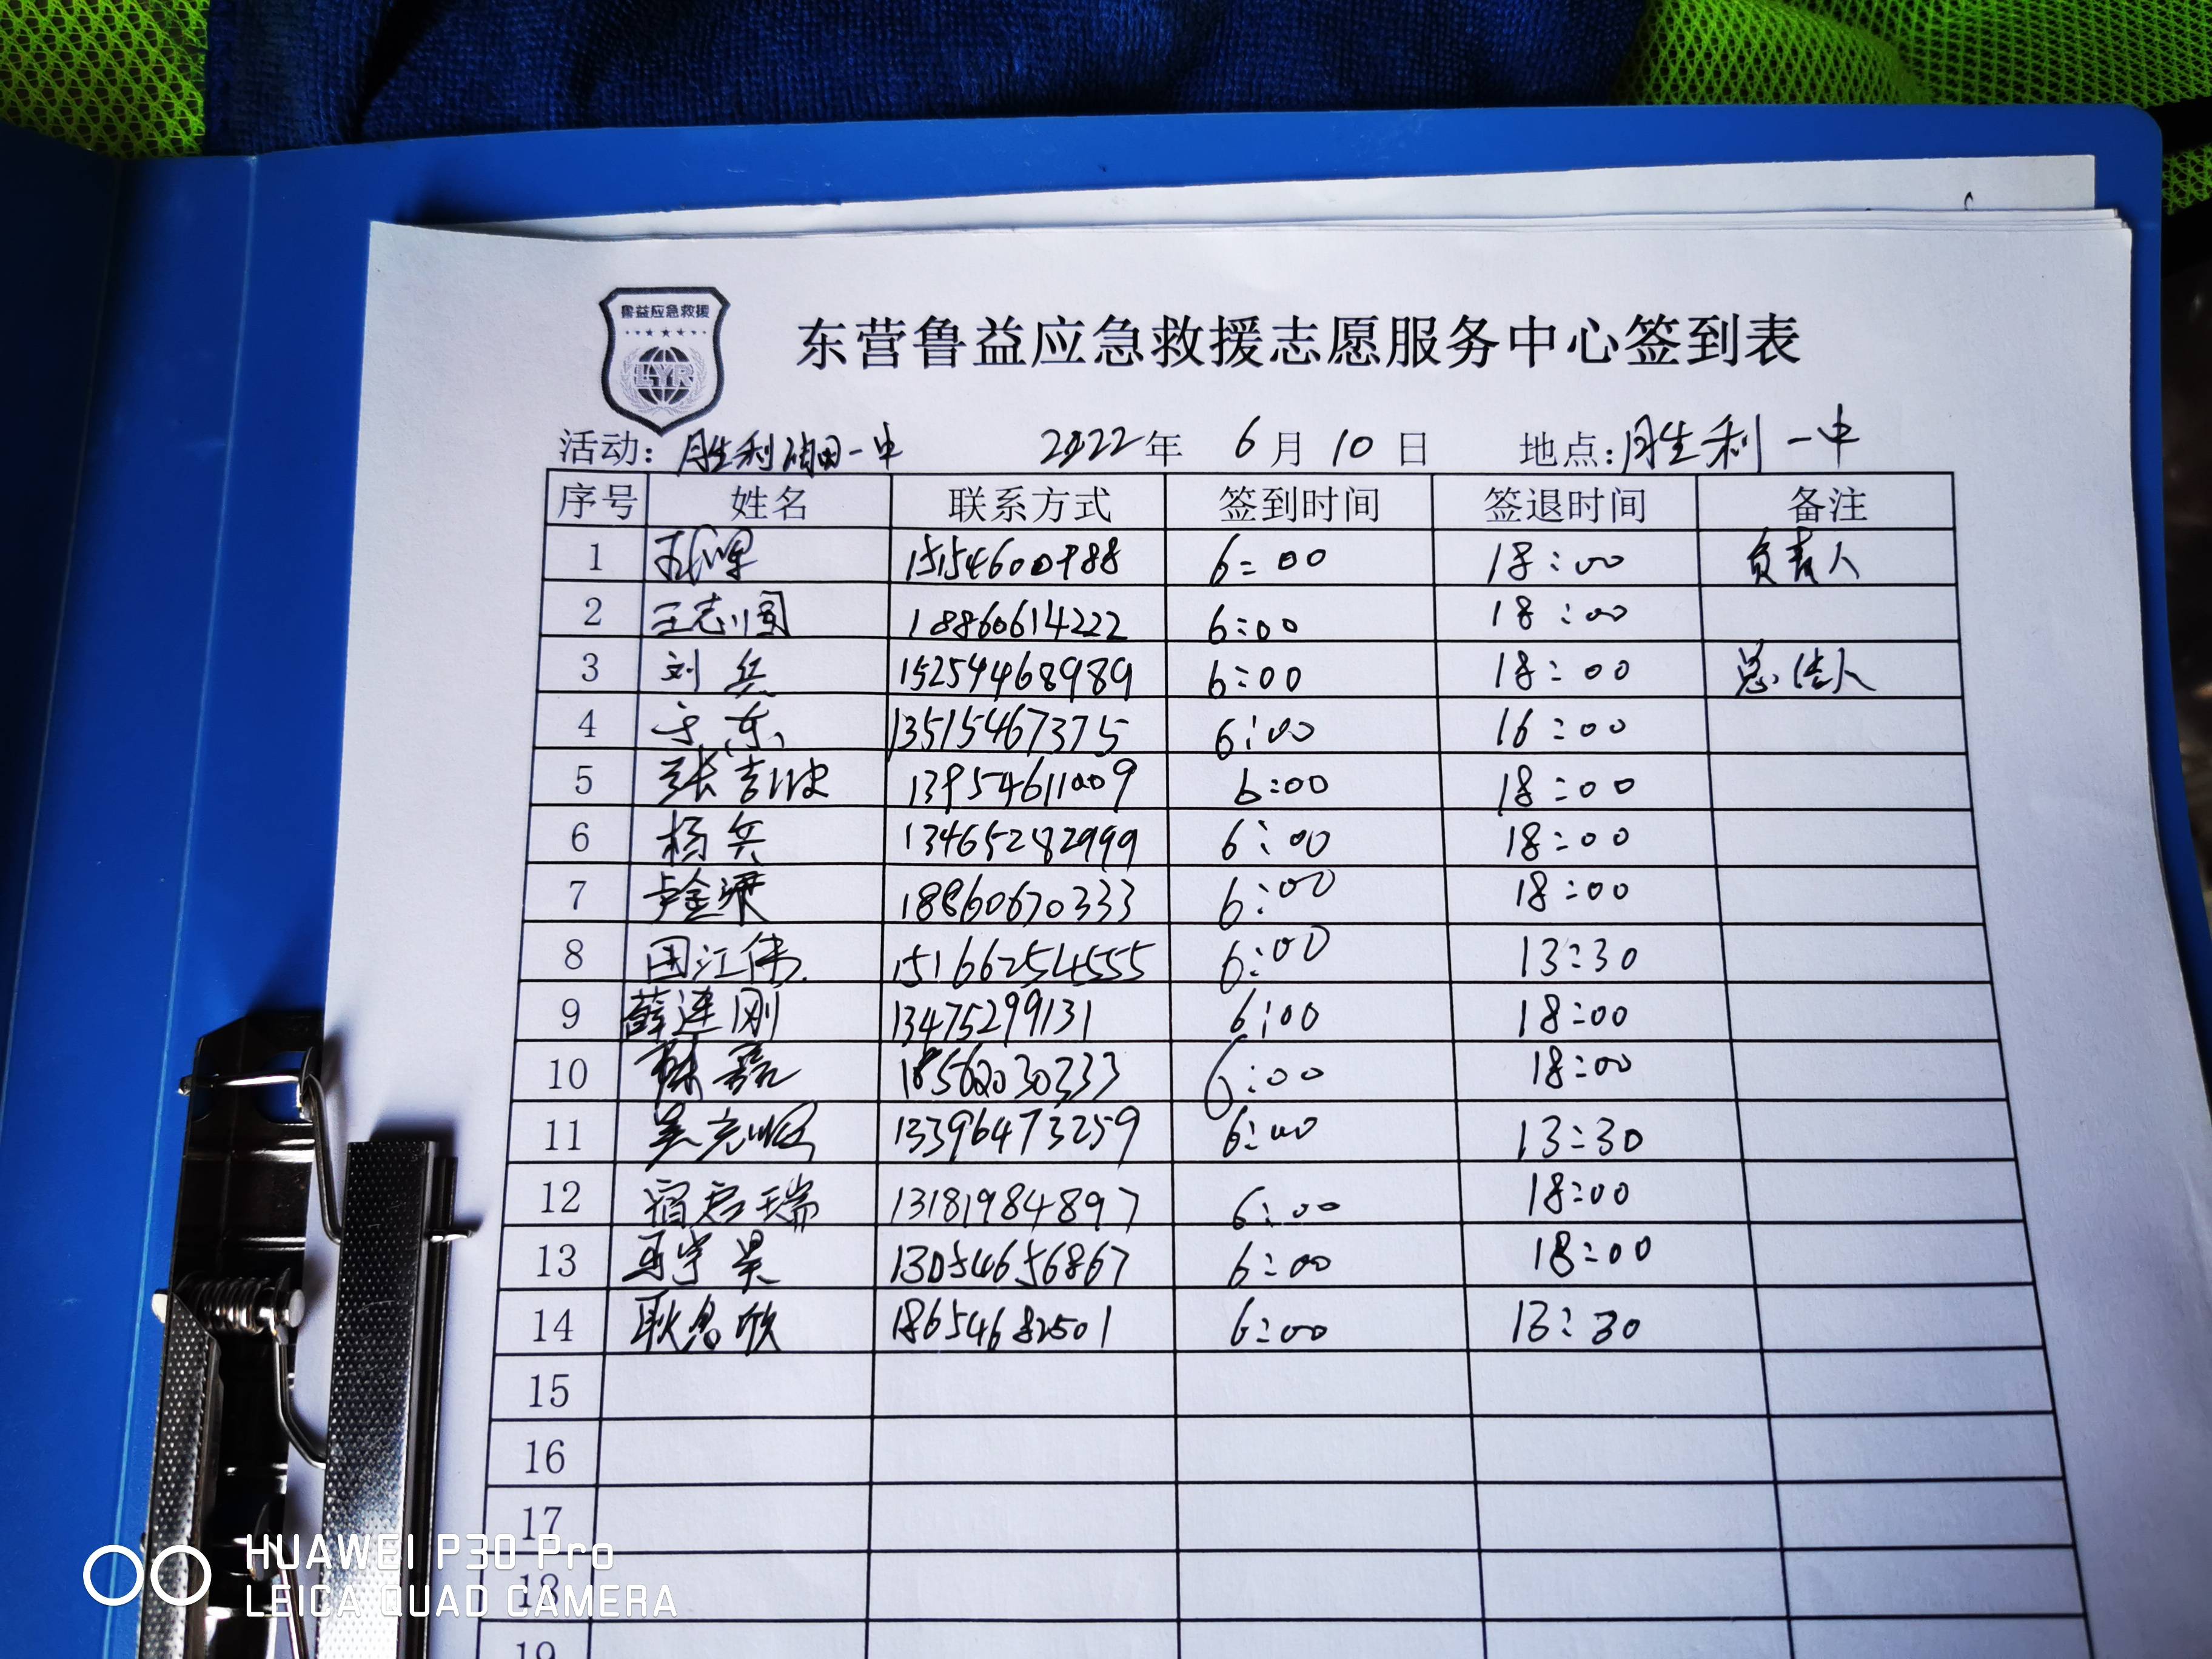 鲁益应急救援
LYR
东营鲁益应急救援志愿服务中心签到表
活动: 胜利油田一中 2022年 6月10日 地点: 胜利一中
序号 姓名 联系方式 签到时间 签退时间 备注
1 6:00 18:00 负责人
2 王志国 18860614222 6:00 18:00
3 刘兵 15254468989 6:00 18:00 总结人
4 东 13515467375 6:00 16:00
5 张吉波 13954611009 6:00 18:00
6 杨兵 13465282999 6:00 18:00
7 卢金梁 18860670333 6:00 18:00
8 国江伟 15166254555 6:00 13:30
9 薛连刚 13475299131 6:00 18:00
10 18562030333 6:00 18:00
11 吴克 13396473259 6:00 13:30
12 宿君瑞 13181984897 6:00 18:00
13 宇昊 13054656867 6:00 18:00
14 耿 欣 18654682501 6:00 13:30
15
16
17
18
19
HUAWEI P30 Pro
LEICA QUAD CAMERA